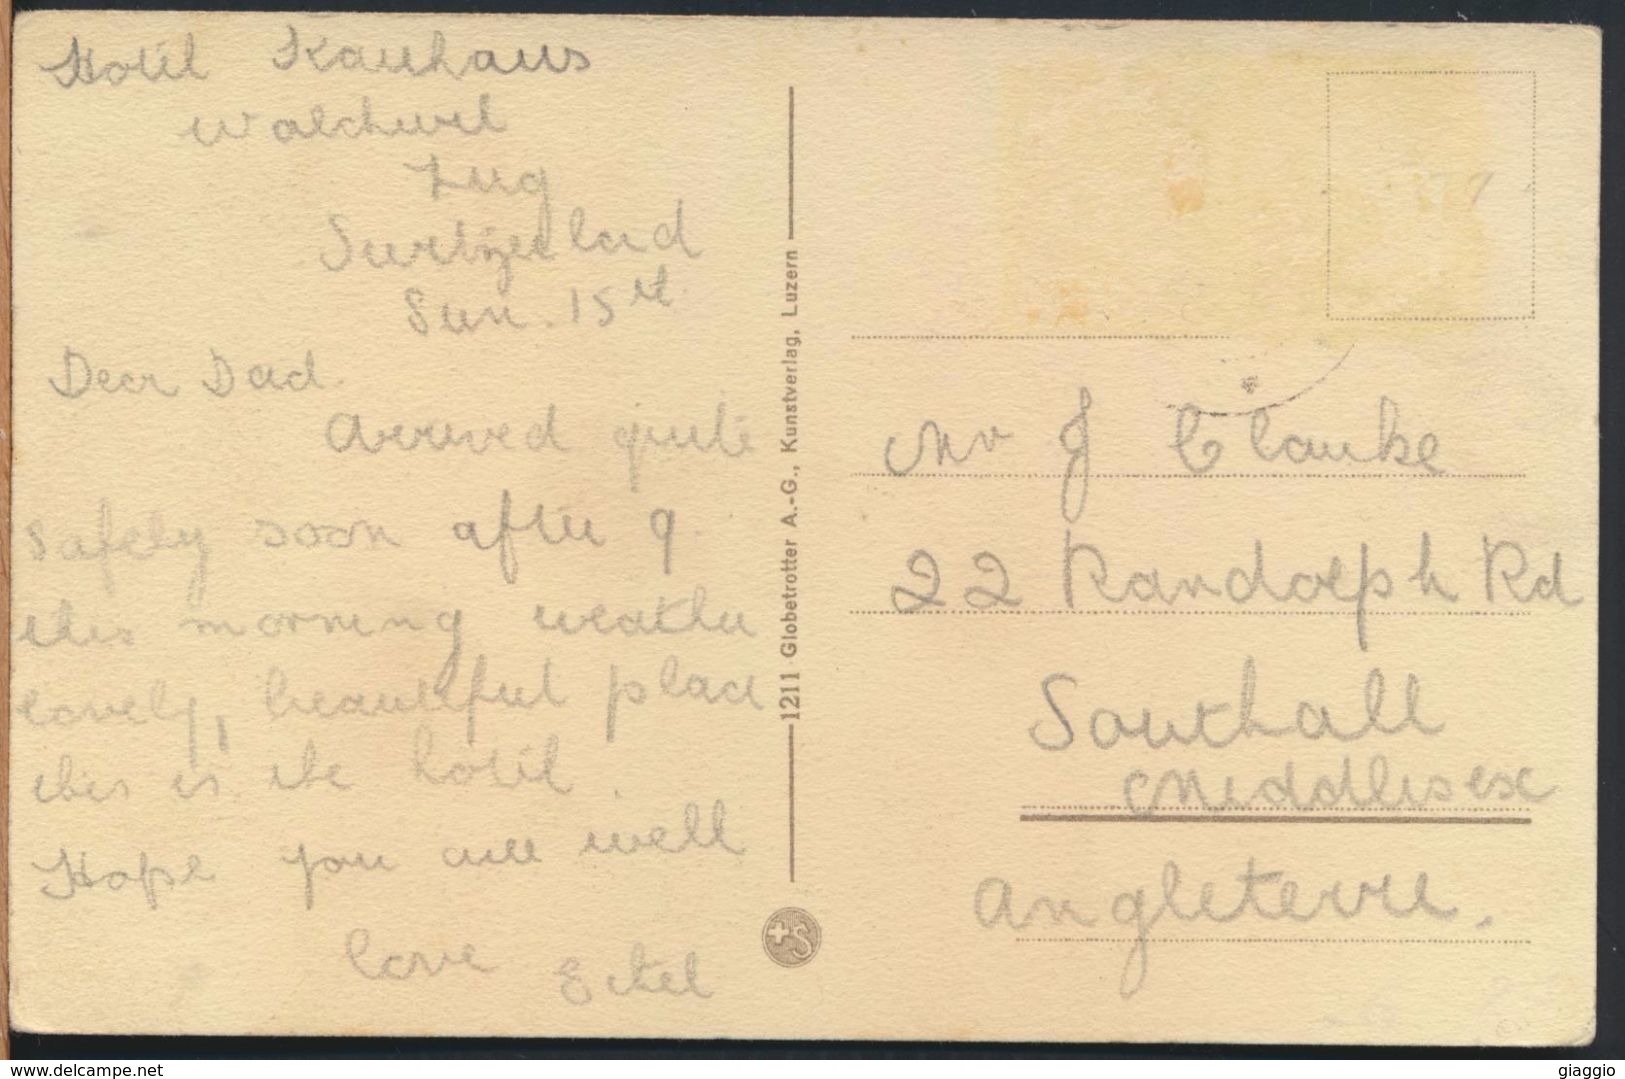 Hotel Kauhaus
Walchwil
Zug
Switzerland
Sun. 15th
Dear Dad.
Arrived quite
safely soon after 9.
this morning weather
lovely, beautiful place
this is the hotel.
Hope you are well
love Ethel
1211 Globetrotter A.-G., Kunstverlag, Luzern
Mr J Clarke
22 Randolph Rd
Southall
Middlesex
Angleterre.
giaggio
delcampe.net